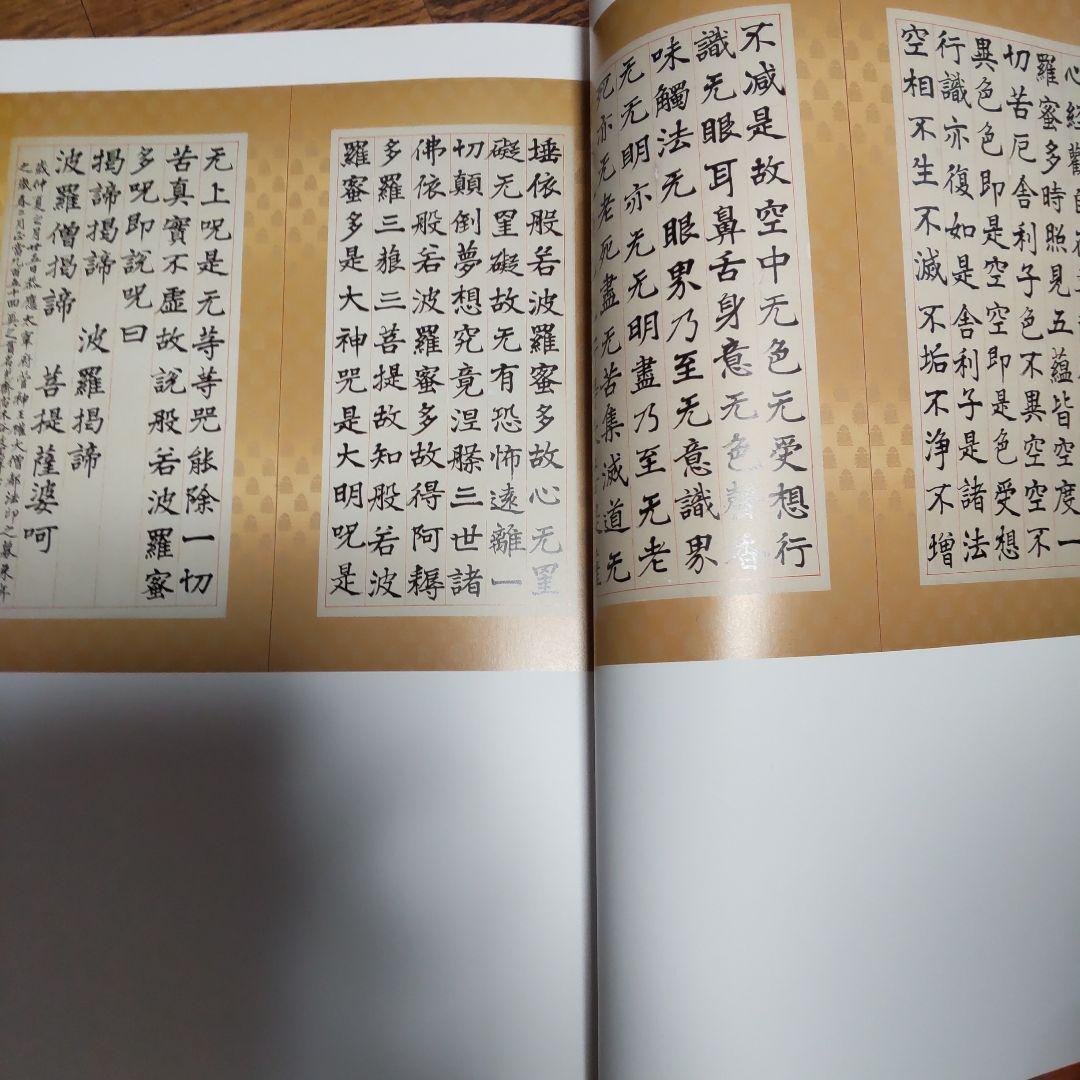 心經觀自
羅蜜多時照見五蘊皆空度一
切苦厄舎利子色不異空空不
異色色即是空空即是色受想
行識亦復如是舎利子是諸法
空相不生不滅不垢不浄不増
不減是故空中无色无受想行
識无眼耳鼻舌身意无色聲香
味觸法无眼界乃至无意識界
无无明亦无无明盡乃至无老
死亦无老死盡无苦集滅道无
埵依般若波羅蜜多故心无罣
礙无罣礙故无有恐怖遠離一
切顛倒夢想究竟涅槃三世諸
佛依般若波羅蜜多故得阿耨
多羅三藐三菩提故知般若波
羅蜜多是大神咒是大明呪是
无上呪是无等等咒能除一切
苦真實不虚故說般若波羅蜜
多呪即說呪曰
揭諦揭諦 波羅揭諦
波羅僧揭諦 菩提薩婆呵
歳仲夏 月廿五日恭應太宰府 大僧都法印之募